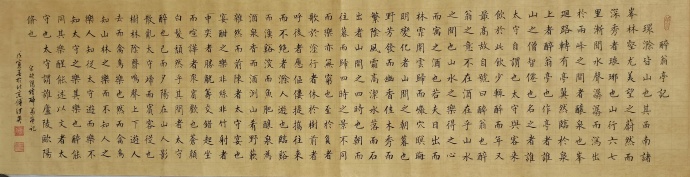 醉翁亭記
環滁皆山也其西南諸
峯林壑尤美望之蔚然而
深秀者琅琊也山行六七
里漸聞水聲潺潺而瀉出
於兩峰之間者釀泉也峯
迴路轉有亭翼然臨於泉
上者醉翁亭也作亭者誰
山之僧智僊也名之者誰
太守自謂也太守與客來
飲於此飲少輒醉而年又
最高故自號曰醉翁也醉
翁之意不在酒在乎山水
之間也山水之樂得之心
而寓之酒也若夫日出而
林霏開雲歸而巖穴暝晦
明變化者山間之朝暮也
野芳發而幽香佳木秀而
繁陰風霜高潔水落而石
出者山間之四時也朝而
往暮而歸四時之景不同
而樂亦無窮也至於負者
歌於塗行者休於樹前者
呼後者應傴僂提攜往來
而不絕者滁人遊也臨谿
而漁谿深而魚肥釀泉為
酒泉香而酒洌山肴野蔌
雜然而前陳者太守宴也
宴酣之樂非絲非竹射者
中奕者勝觥籌交錯起坐
而諠譁者衆賓懽也蒼顏
白髮頹然乎其間者太守
醉也已而夕陽在山人影
散亂太守歸而賓客從也
樹林陰翳鳴聲上下遊人
去而禽鳥樂也然而禽鳥
知山林之樂而不知人之
樂人知從太守遊而樂不
知太守之樂其樂也醉能
同其樂醒能述以文者太
守也太守謂誰廬陵歐陽
修也
宋歐陽修醉翁亭記